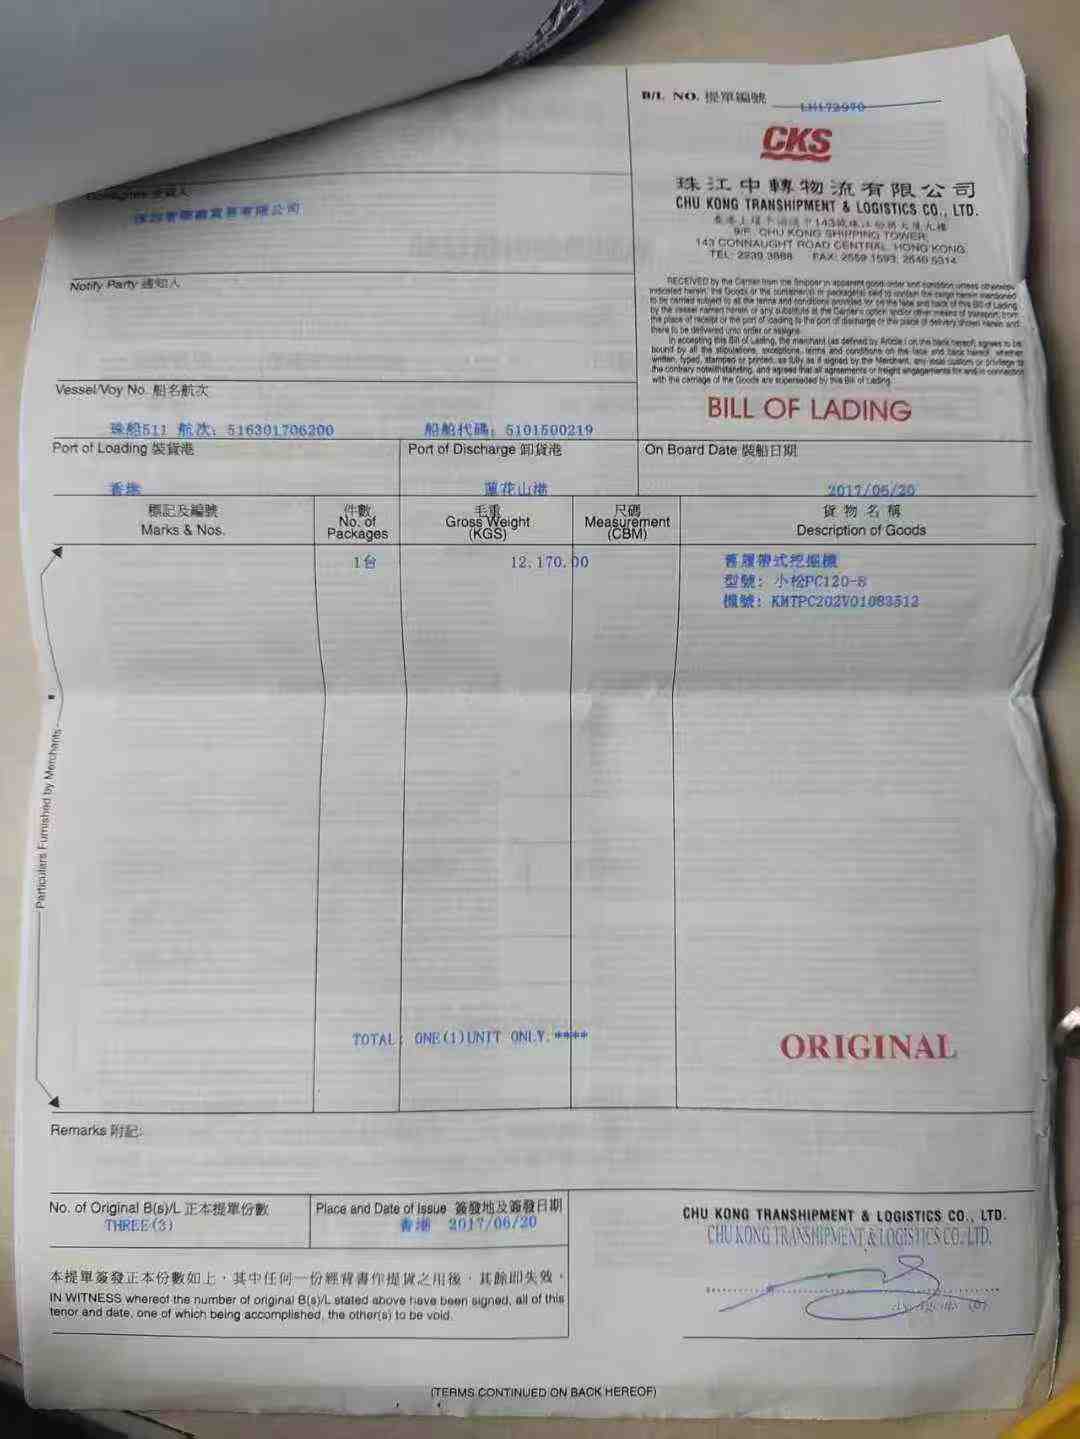 B/L NO. 提單編號
LH172970
CKS
珠江中轉物流有限公司
CHU KONG TRANSHIPMENT & LOGISTICS CO., LTD.
9/F, CHU KONG SHIPPING TOWER
143 CONNAUGHT ROAD CENTRAL, HONG KONG
TEL: 2239 3888 FAX: 2559 1593, 2546 5314
有限公司
Notify Party 通知人
RECEIVED by the Carrier from the Shipper in apparent good order and condition unless otherwise
indicated herein, the Goods or the container(s) or package(s) said to contain the cargo herein mentioned
to be carried subject to all the terms and conditions provided for on the face and back of this Bill of Lading
by the vessel named herein or any substitute at the Carrier's option and/or other means of transport, from
the place of receipt or the port of loading to the port of discharge or the place of delivery shown herein and
there to be delivered unto order or assigns.
In accepting this Bill of Lading, the merchant (as defined by Article I on the back hereof) agrees to be
bound by all the stipulations, exceptions, terms and conditions on the face and back hereof, whether
written, typed, stamped or printed, as fully as if signed by the Merchant, any local custom or privilege to
the contrary notwithstanding, and agrees that all agreements or freight engagements for and in connection
with the carriage of the Goods are superseded by this Bill of Lading.
BILL OF LADING
Vessel/Voy No. 船名航次
珠船511 航次: 516301706200 船舶代碼: 5101500219
Port of Loading 裝貨港 Port of Discharge 卸貨港 On Board Date 裝船日期
香港 蓮花山港 2017/06/20
標記及編號 件數 毛重 尺碼 貨物名稱
Marks & Nos. No. of Packages Gross Weight (KGS) Measurement (CBM) Description of Goods
1台 12,170.00 舊履帶式挖掘機
型號: 小松PC120-8
機號: KMTPC202V01083512
Particulars Furnished by Merchants
TOTAL: ONE(1)UNIT ONLY.****
ORIGINAL
Remarks 附記:
No. of Original B(s)/L 正本提單份數 Place and Date of Issue 簽發地及簽發日期
THREE(3) 香港 2017/06/20
CHU KONG TRANSHIPMENT & LOGISTICS CO., LTD.
CHU KONG TRANSHIPMENT & LOGISTICS CO. LTD.
本提單簽發正本份數如上，其中任何一份經背書作提貨之用後，其餘即失效。
IN WITNESS whereof the number of original B(s)/L stated above have been signed, all of this
tenor and date, one of which being accomplished, the other(s) to be void.
(TERMS CONTINUED ON BACK HEREOF)